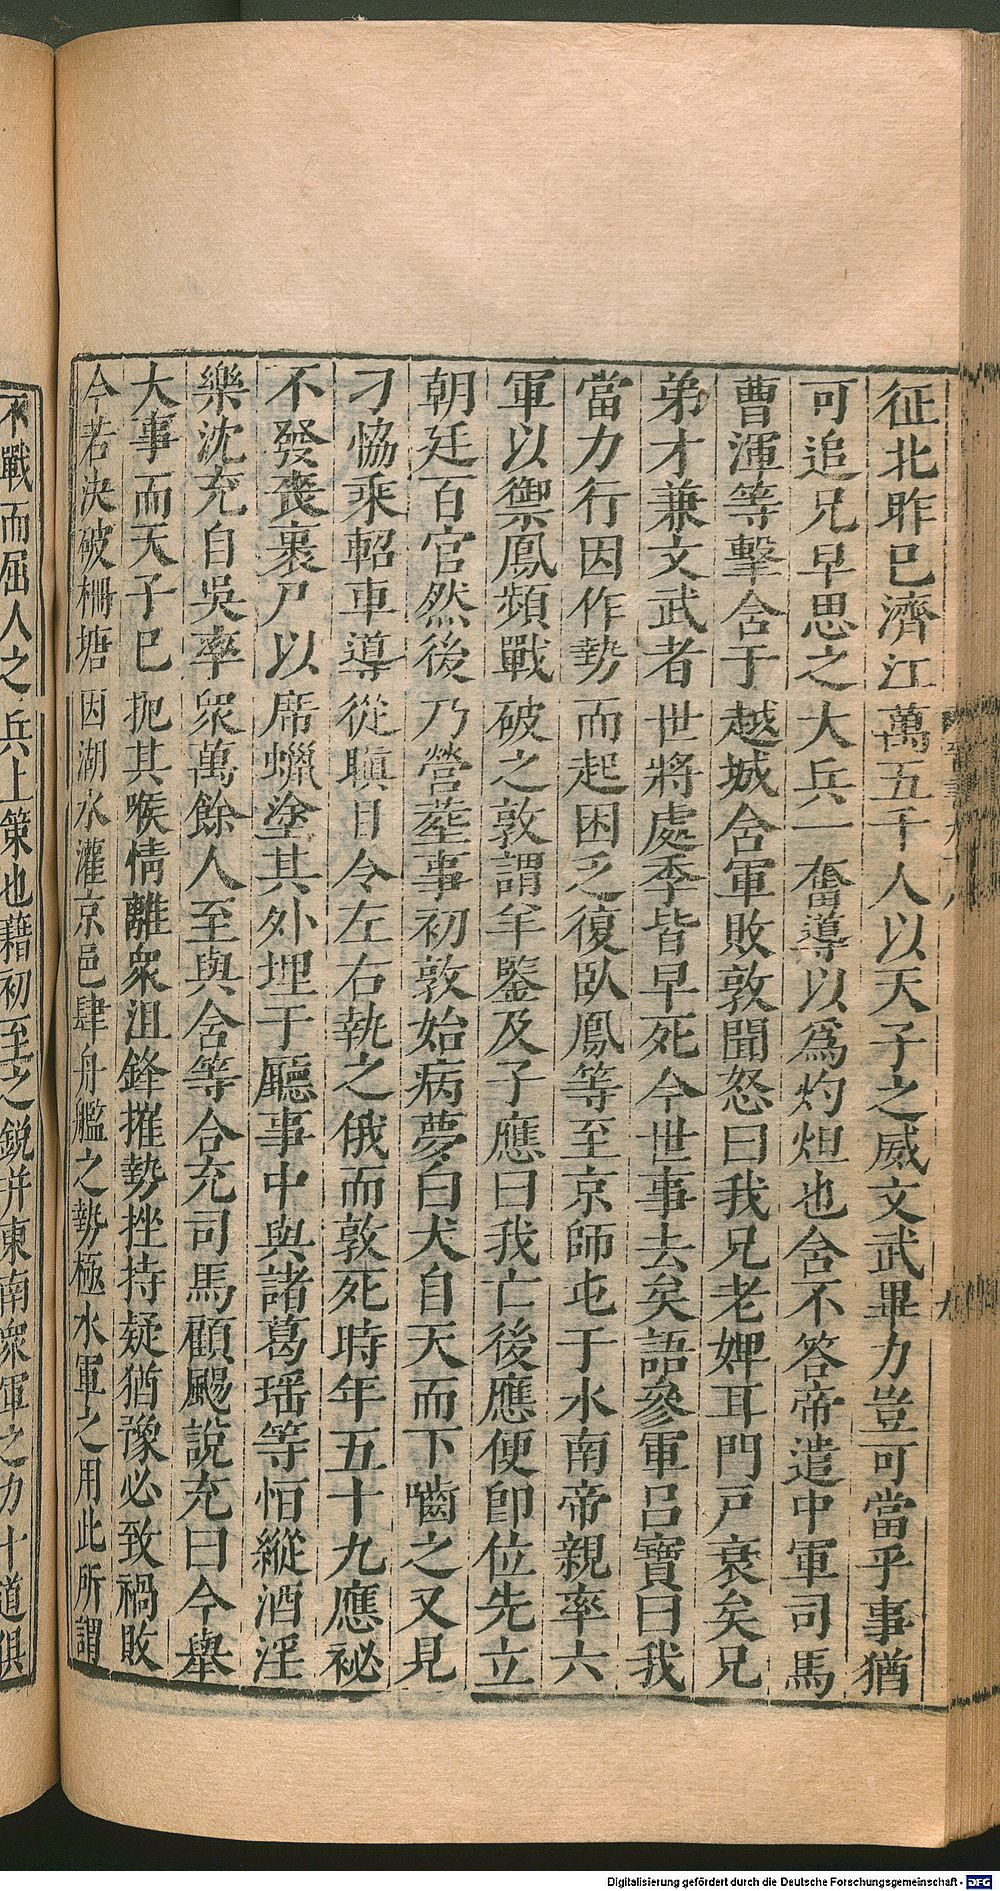 征北昨已濟江萬五千人以天子之威文武畢力豈可當乎事猶
可追兄早思之大兵一奮導以爲灼炟也含不答帝遣中軍司馬
曹渾等擊含于越城含軍敗敦聞怒曰我兄老婢耳門戸衰矣兄
弟才兼文武者世將處季皆早死今世事去矣語參軍呂寶曰我
當力行因作勢而起困乏復臥鳳等至京師屯于水南帝親率六
軍以禦鳳頻戰破之敦謂羊鑒及子應曰我亡後應便卽位先立
朝廷百官然後乃營葬事初敦始病夢白犬自天而下嚙之又見
刁恊乘軺車導從瞋目令左右執之俄而敦死時年五十九應祕
不發喪裹尸以席蠟塗其外埋于廳事中與諸葛瑶等恒縱酒淫
樂沈充自吳率衆萬餘人至與含等合充司馬顧颺說充曰今舉
大事而天子已扼其喉情離衆沮鋒摧勢挫持疑猶豫必致禍敗
今若決破柵塘因湖水灌京邑肆舟艦之勢極水軍之用此所謂
不戰而屈人之兵上策也藉初至之銳并東南衆軍之力十道俱
Digitalisierung gefördert durch die Deutsche Forschungsgemeinschaft - DFG